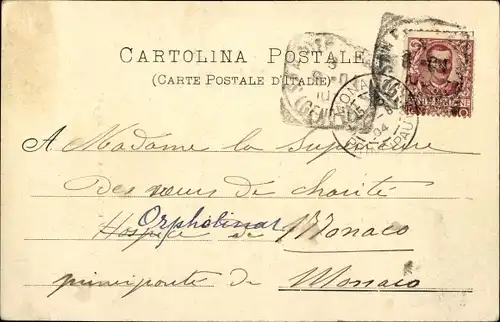 CARTOLINA POSTALE
(CARTE POSTALE D'ITALIE)
A Madame la Supérieure
Des sœurs de charité
Hospice de Monaco
Orphelinat
principauté de Monaco